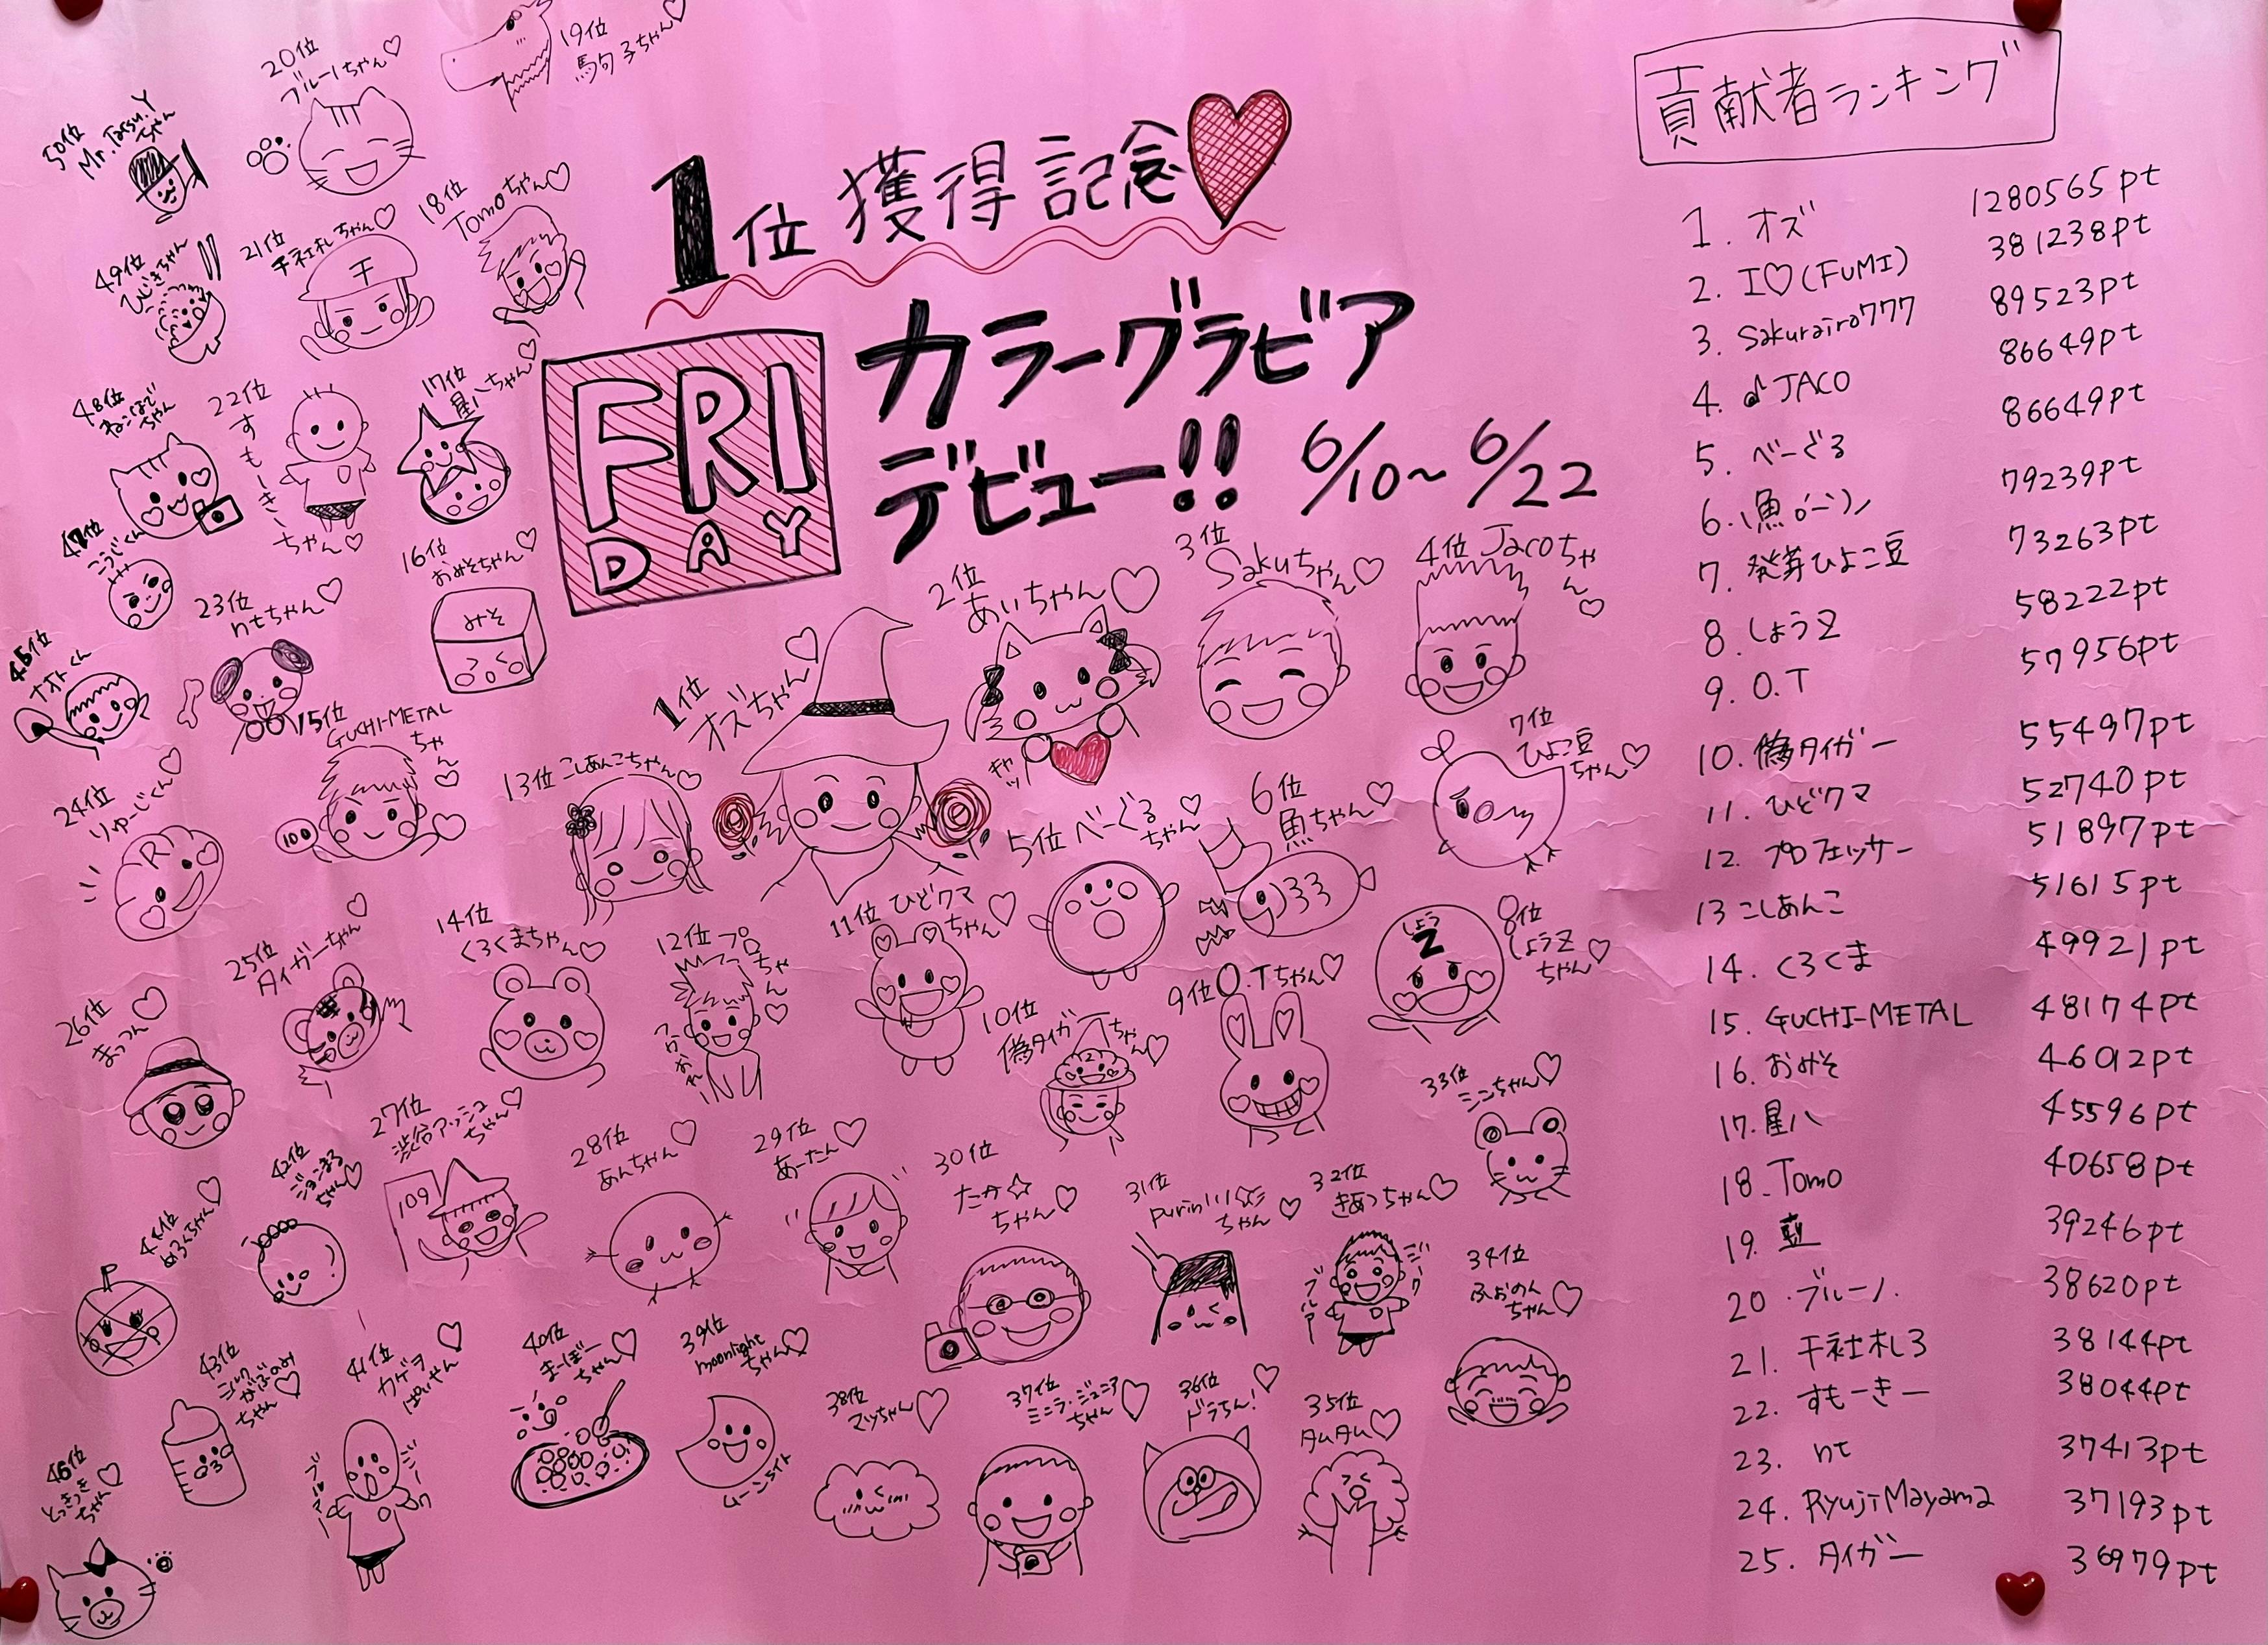 1位獲得記念
FRI
DAY
カラーグラビア
デビュー!! 6/10〜6/22
1位
オズちゃん♡
2位
あいちゃん♡
キャッ
3位
Sakuちゃん♡
4位 Jacoちゃん♡
5位 べーぐる
ちゃん♡
6位
魚ちゃん♡
7位
ひよこ豆
ちゃん♡
しょう
Z
8位
しょうZ
ちゃん♡
9位 O.Tちゃん♡
10位
偽タイガーちゃん♡
11位 ひどクマ
ちゃん♡
12位 プロちゃん♡
13位 こしあんこちゃん♡
14位
くろくまちゃん♡
15位
GUCHI-METAL
ちゃん♡
100
16位
おみそちゃん♡
みそ
17位
星八ちゃん♡
18位
Tomoちゃん♡
19位
20位
ブルーノちゃん♡
21位
干社札ちゃん♡
干
22位
すもーきー
ちゃん♡
23位
ntちゃん♡
24位
りゅーじくん♡
R
25位
タイガーちゃん♡
26位
まっつん♡
27位
渋谷アッシュ
ちゃん♡
109
28位
あんちゃん♡
29位
あーたん♡
30位
たか☆
ちゃん♡
31位
ちゃん♡
32位
きあつちゃん♡
33位
ミンちゃん♡
34位
ふぉのん
ちゃん♡
35位
タムタム♡
36位
ドラちん!♡
37位
ミニラ・ジュニア
ちゃん♡
38位
マッちゃん♡
39位
moonlight
ちゃん♡
ムーンライト
40位
まーぼー
ちゃん♡
41位
カゲヲ
ぱいせん♡
42位
ジョンまる
ちゃん♡
43位
ミルクがぶのみ
ちゃん♡
44位
めろくらちゃん♡
45位
ナオトくん
46位
とっきっき
ちゃん♡
47位
こうじくん
48位
ねこほで
ちゃん
49位
ひじきちゃん
50位
Mr.Tatsu.Y
ちゃん
貢献者ランキング
1. オズ 1280565pt
2. I♡(FUMI) 381238pt
3. Sakurairo777 89523pt
4. ♪JACO 86649pt
5. べーぐる 86649pt
6. 79239pt
7. 発芽ひよこ豆 73263pt
8. しょうZ 58222pt
9. O.T 57956pt
10. 偽タイガー 55497pt
11. ひどクマ 52740pt
12. プロフェッサー 51897pt
13 こしあんこ 51615pt
14. くろくま 49921pt
15. GUCHI-METAL 48174pt
16. おみそ 46092pt
17. 星八 45596pt
18. Tomo 40658pt
19. 39246pt
20. ブルーノ. 38620pt
21. 干社札3 38144pt
22. すもーきー 38044pt
23. nt 37413pt
24. RyujiMayama 37193pt
25. タイガー 36979pt